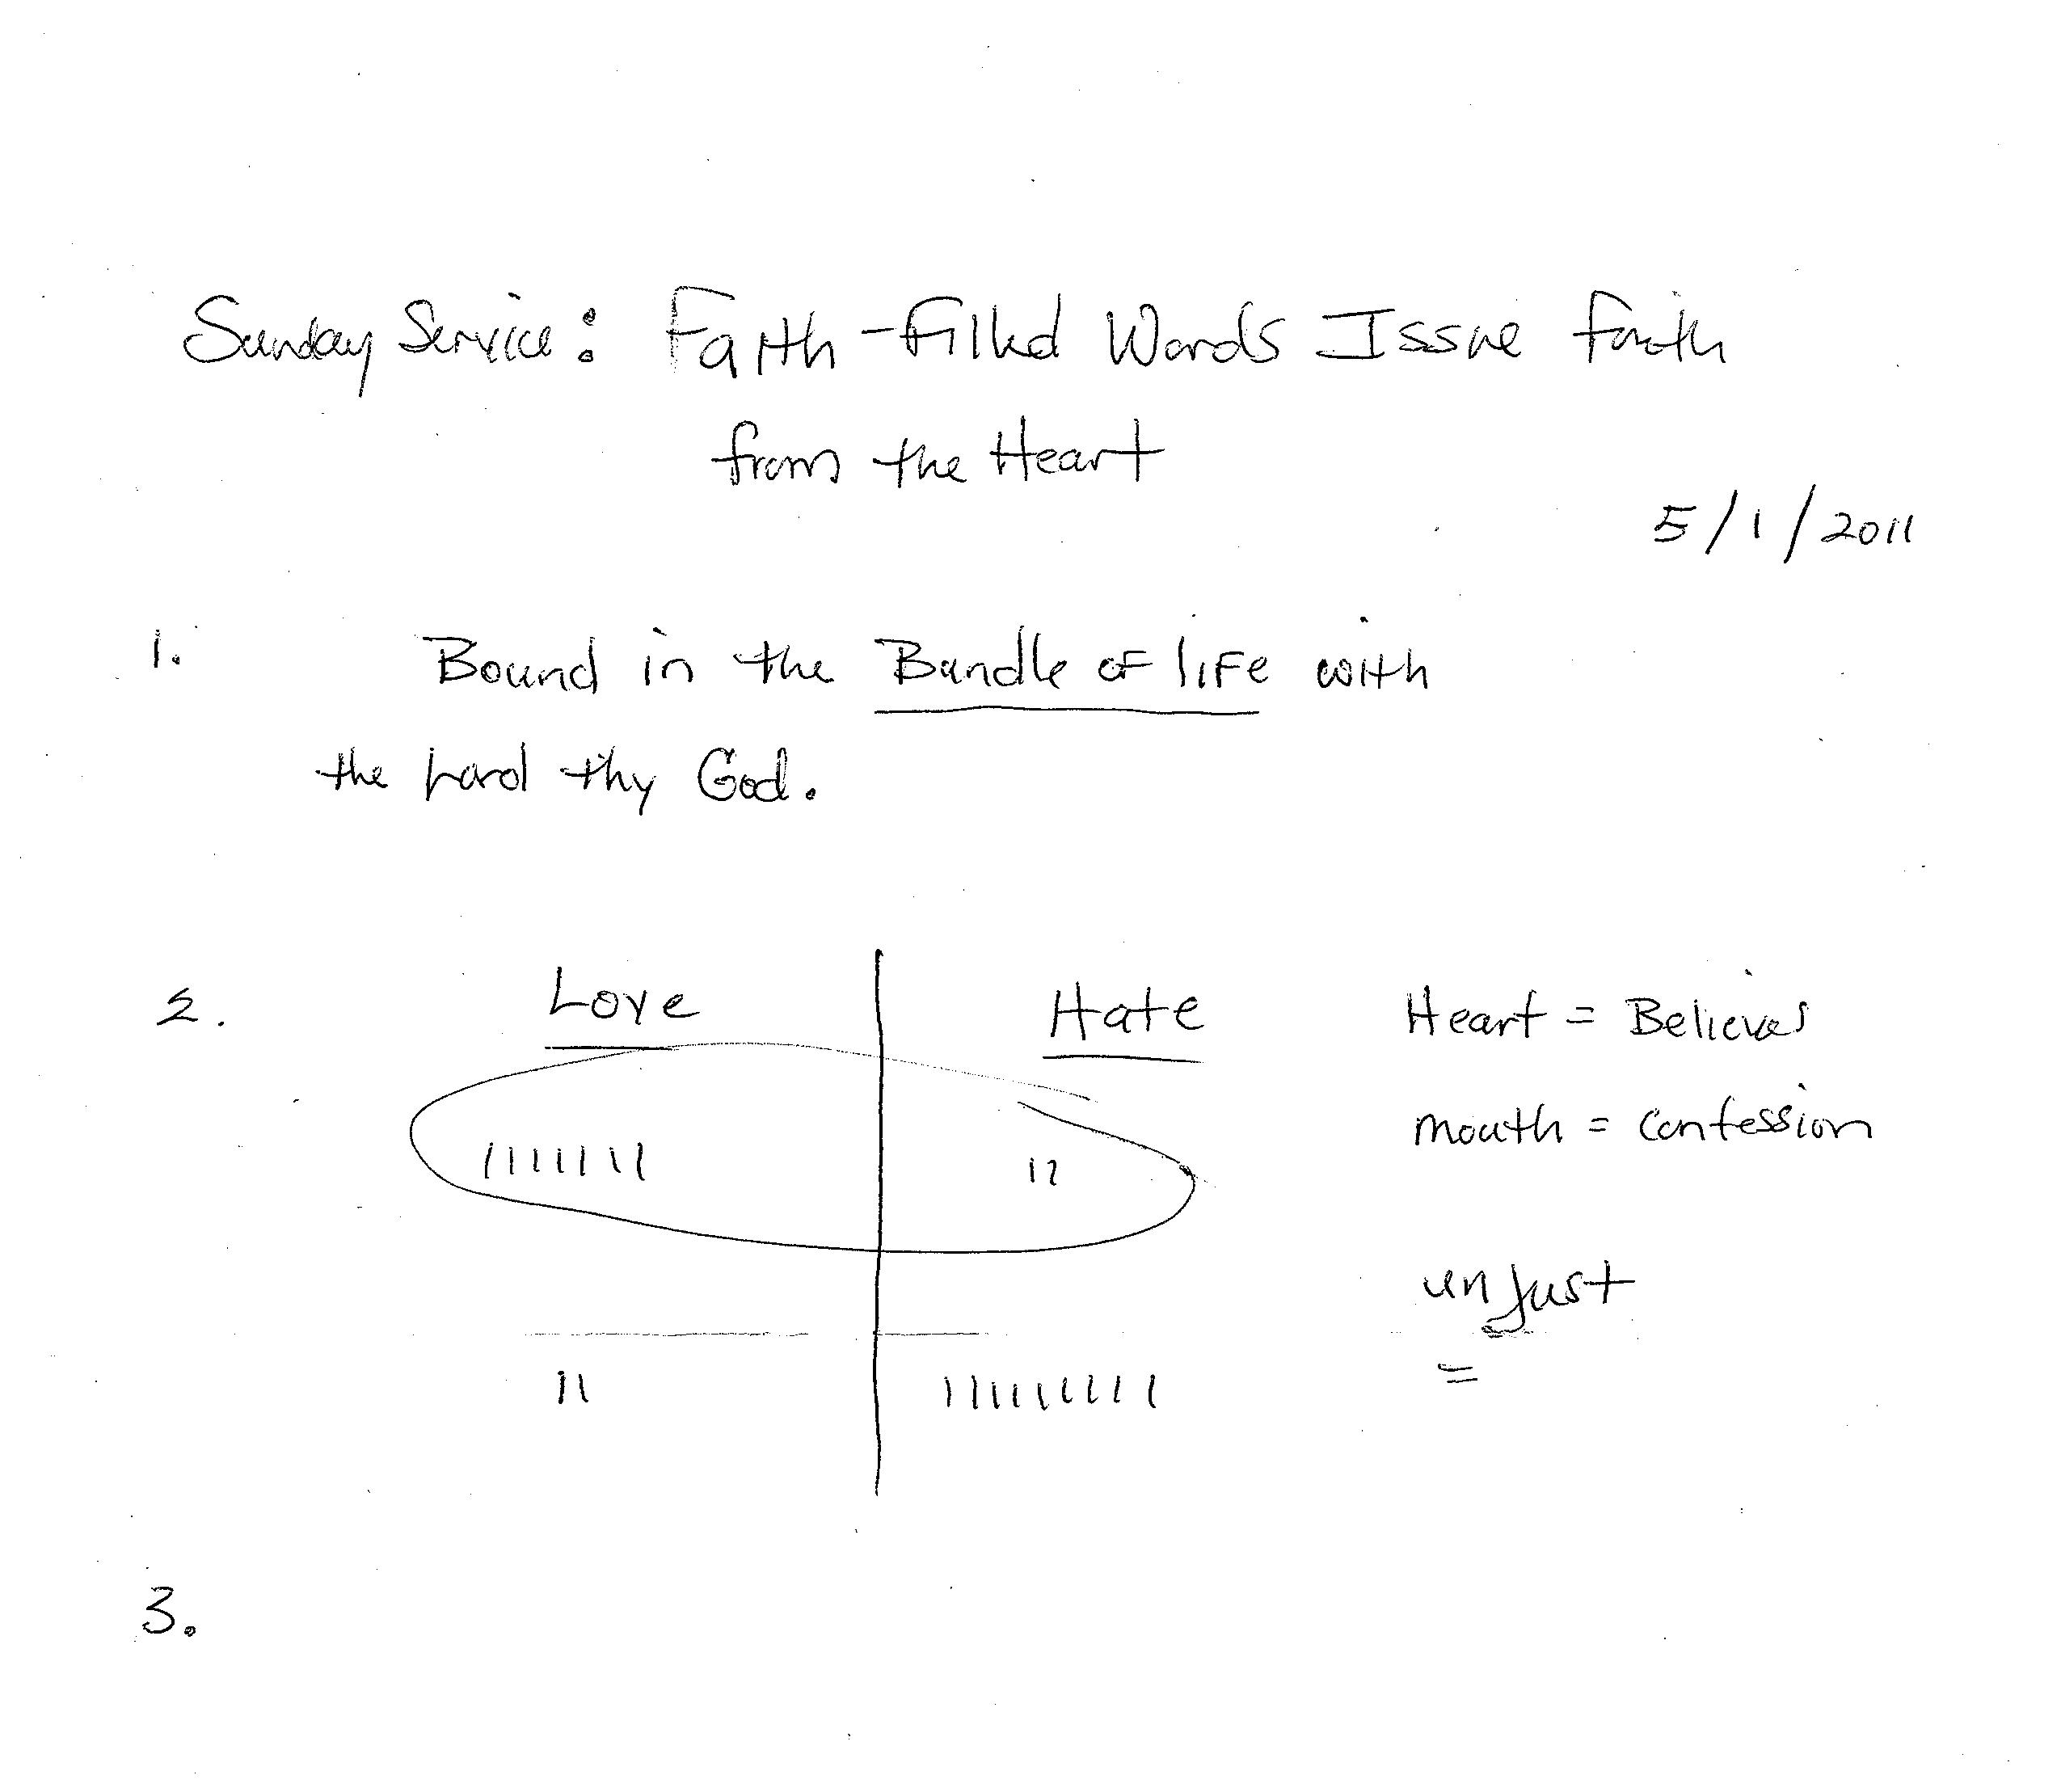 Sunday Service: Faith-Filled Words Issue Faith
from the Heart
5/1/2011
1. Bound in the Bundle of life with
the Lord thy God.
2. Love Hate Heart = Believes
mouth = Confession
||||||| ||
unjust
=
|| |||||||||
3.